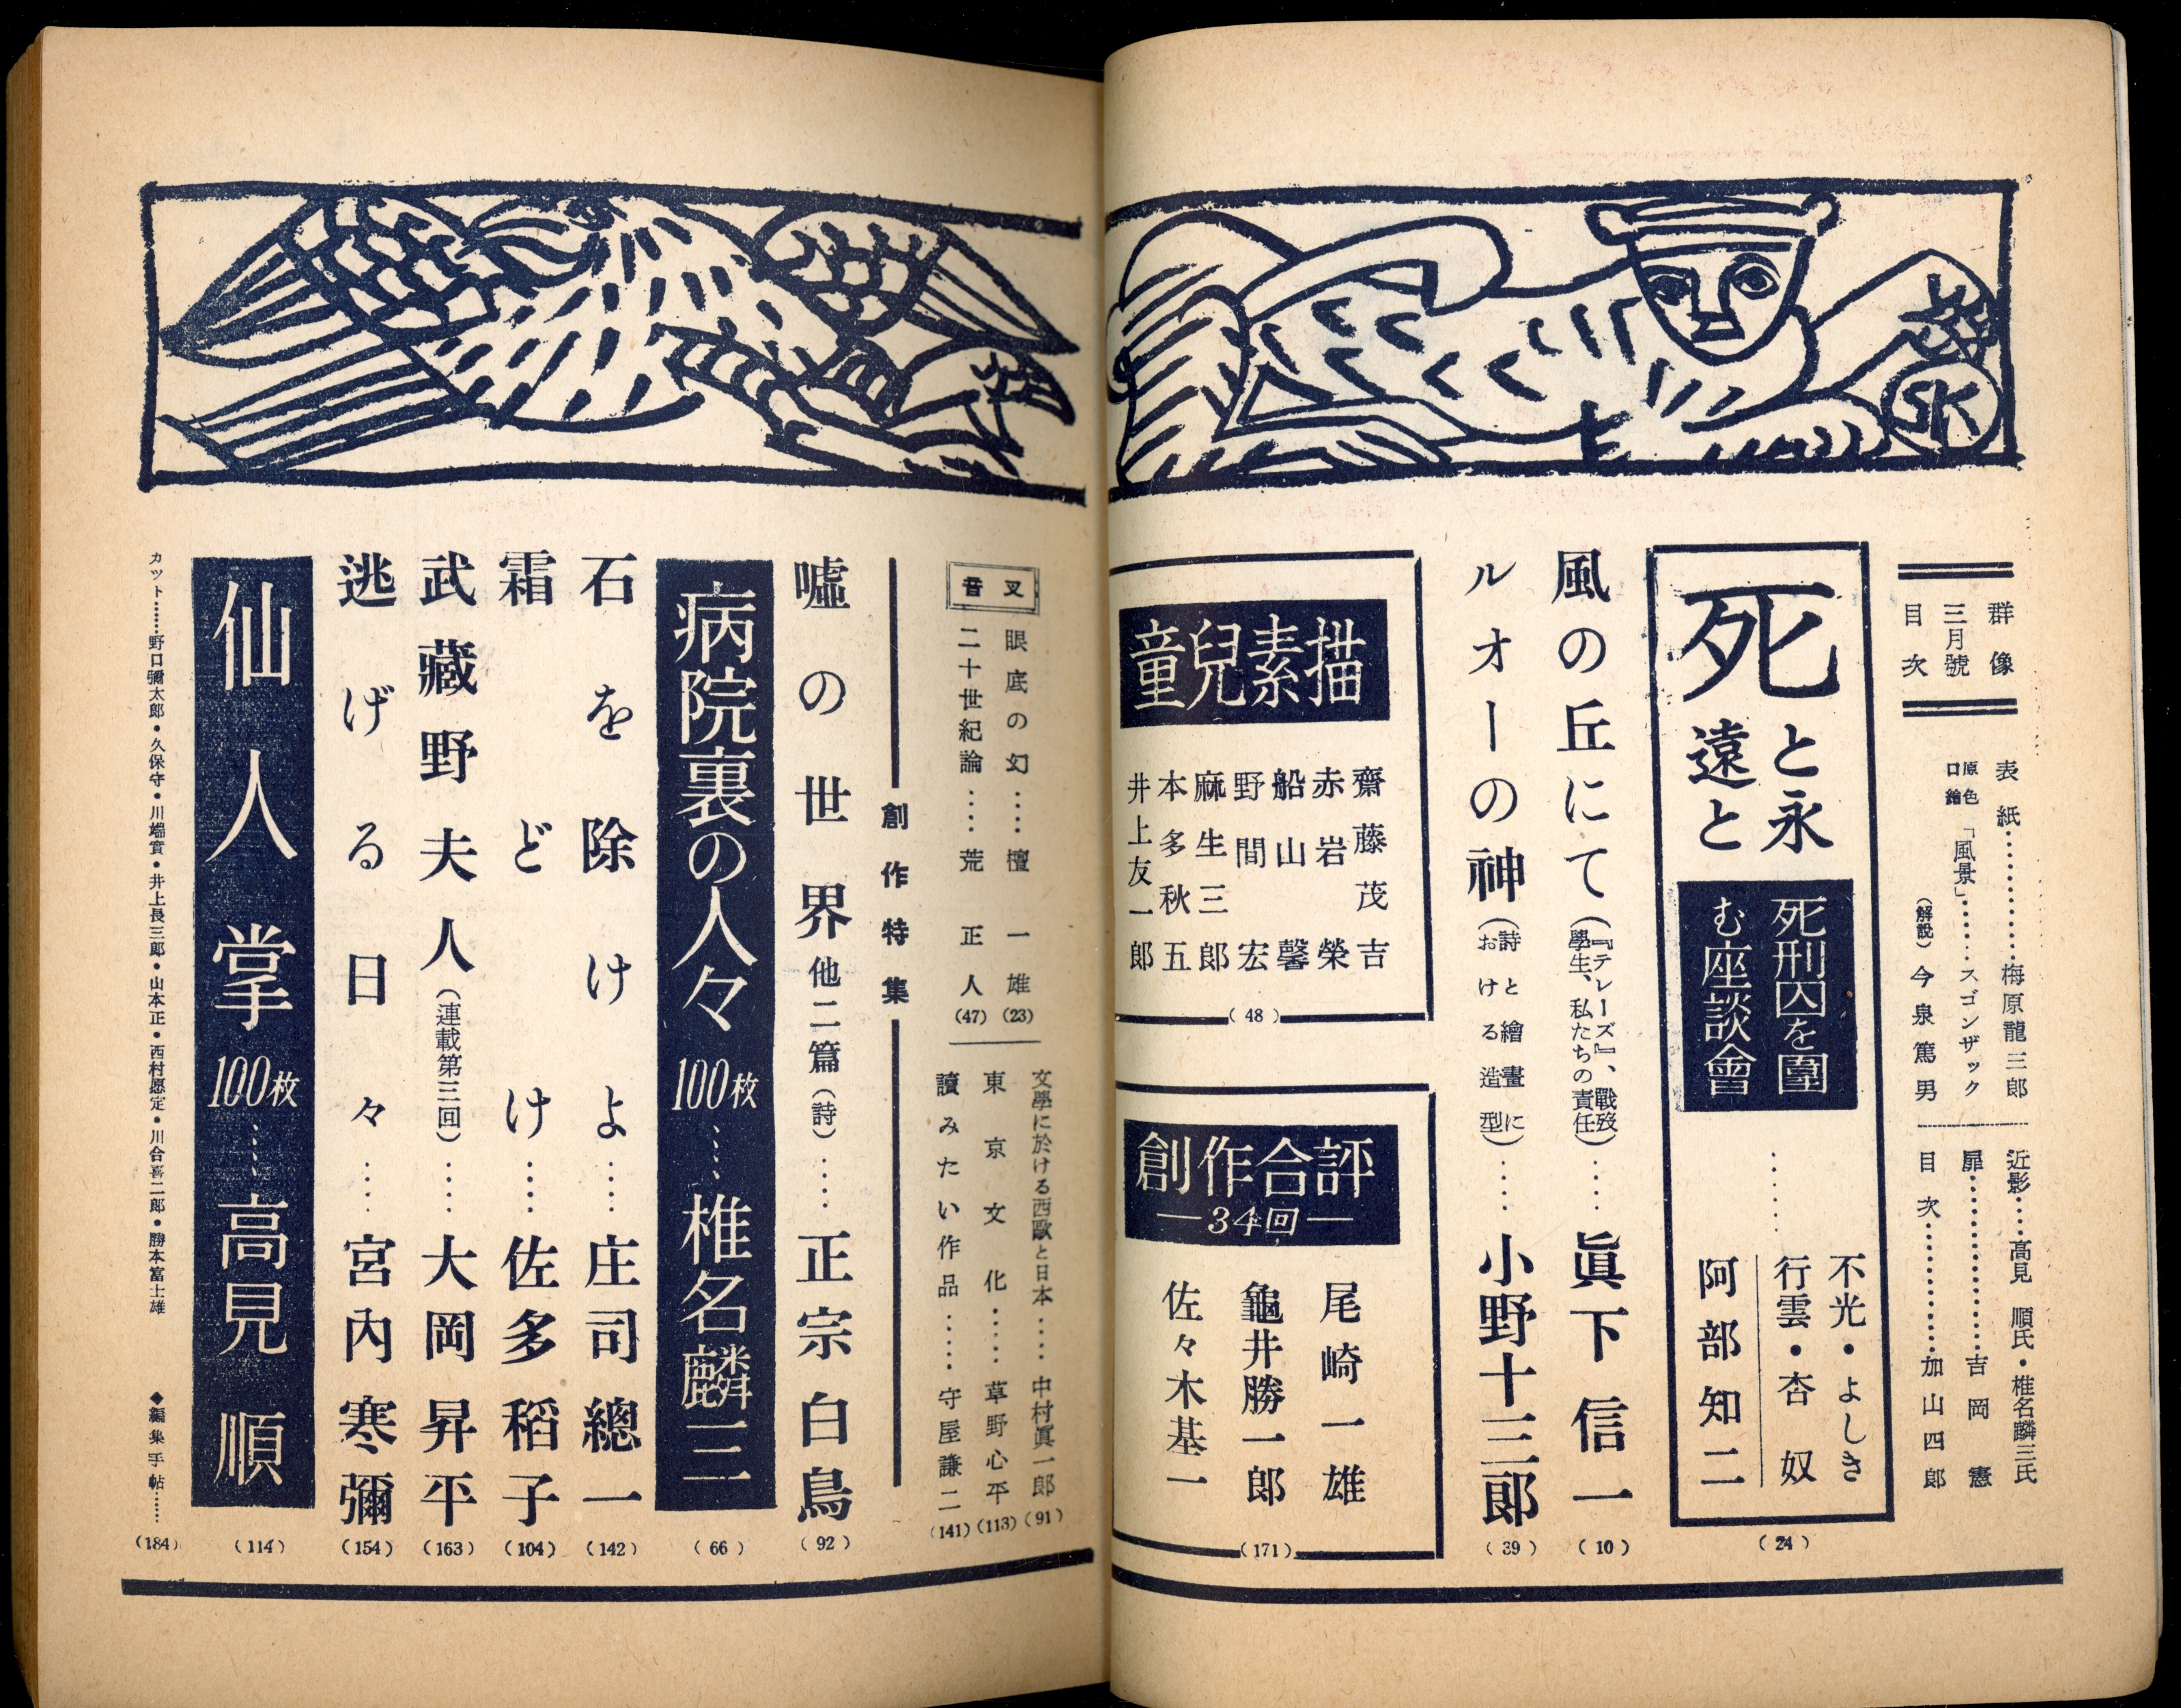 群像
三月號
目次
表紙…………梅原龍三郎
原色口繪「風景」……スゴンザック
（解説）今泉篤男
近影……高見順氏・椎名麟三氏
扉……………吉岡憲
目次…………加山四郎
死と永遠と
死刑囚を圍む座談會
……
不光・よしき
行雲・杏奴
阿部知二
（24）
風の丘にて（『テレーズ』、戰歿學生、私たちの責任）……眞下信一（10）
ルオーの神（詩と繪畫における造型）……小野十三郎（39）
童兒素描
齋藤茂吉
赤岩榮
船山馨
野間宏
麻生三郎
本多秋五
井上友一郎
（48）
創作合評
―34回―
尾崎一雄
龜井勝一郎
佐々木基一
（171）
叉音
眼底の幻……檀一雄（23）
二十世紀論……荒正人（47）
文學に於ける西歐と日本……中村眞一郎（91）
東京文化……草野心平（113）
讀みたい作品……守屋謙二（141）
創作特集
嘘の世界他二篇（詩）……正宗白鳥（92）
病院裏の人々100枚……椎名麟三（66）
石を除けよ……庄司總一（142）
霜どけ……佐多稻子（104）
武藏野夫人（連載第三回）……大岡昇平（163）
逃げる日々……宮內寒彌（154）
仙人掌100枚……高見順（114）
カット……野口彌太郎・久保守・川端實・井上長三郎・山本正・西村愿定・川合喜二郎・勝本富士雄
◆編集手帖……（184）
SK